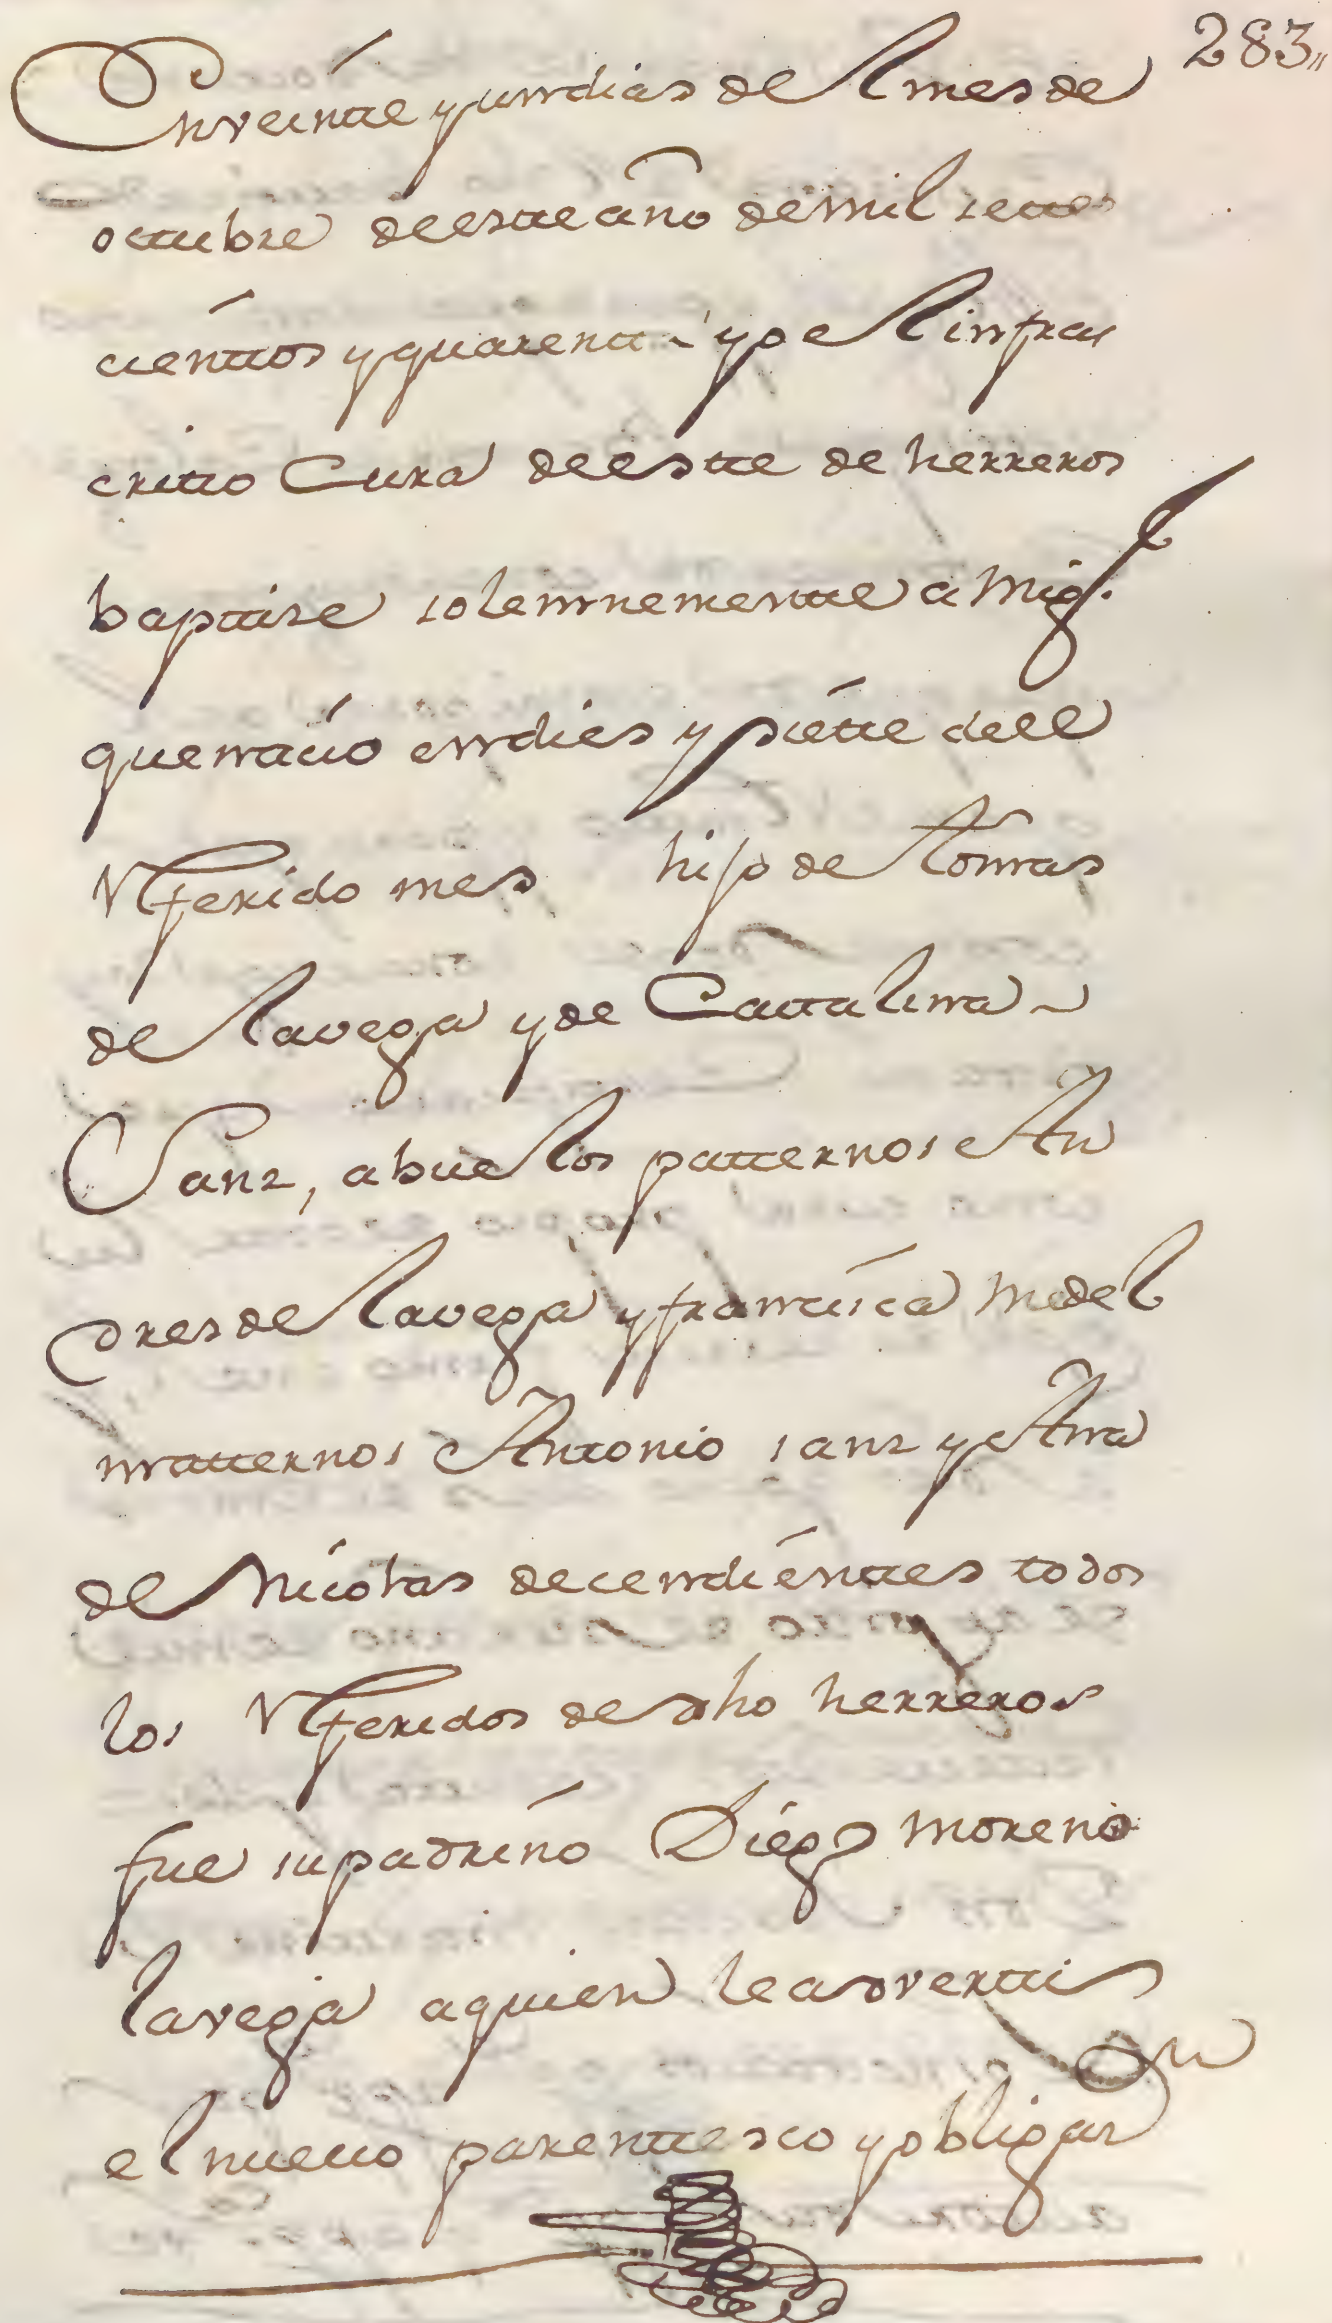 283,,
En veinte y un dias de el mes de
octubre de este año de mil sette
cientos y quarenta yo el infras
critto Cura de este de herreros
baptise solemnemente a Migl.
que nacio en dies y siete de el
Referido mes hijo de Tomas
de la vega y de Cattalina
Sanz, abuelos patternos An
dres de la vega y francisca Medel
matternos Antonio sanz y Ana
de Nicolas decendientes todos
los Referidos de dho herreros
fue su padrino Diego Moreno
la vega a quien le adverti
el nuevo parenttesco y obligas
on